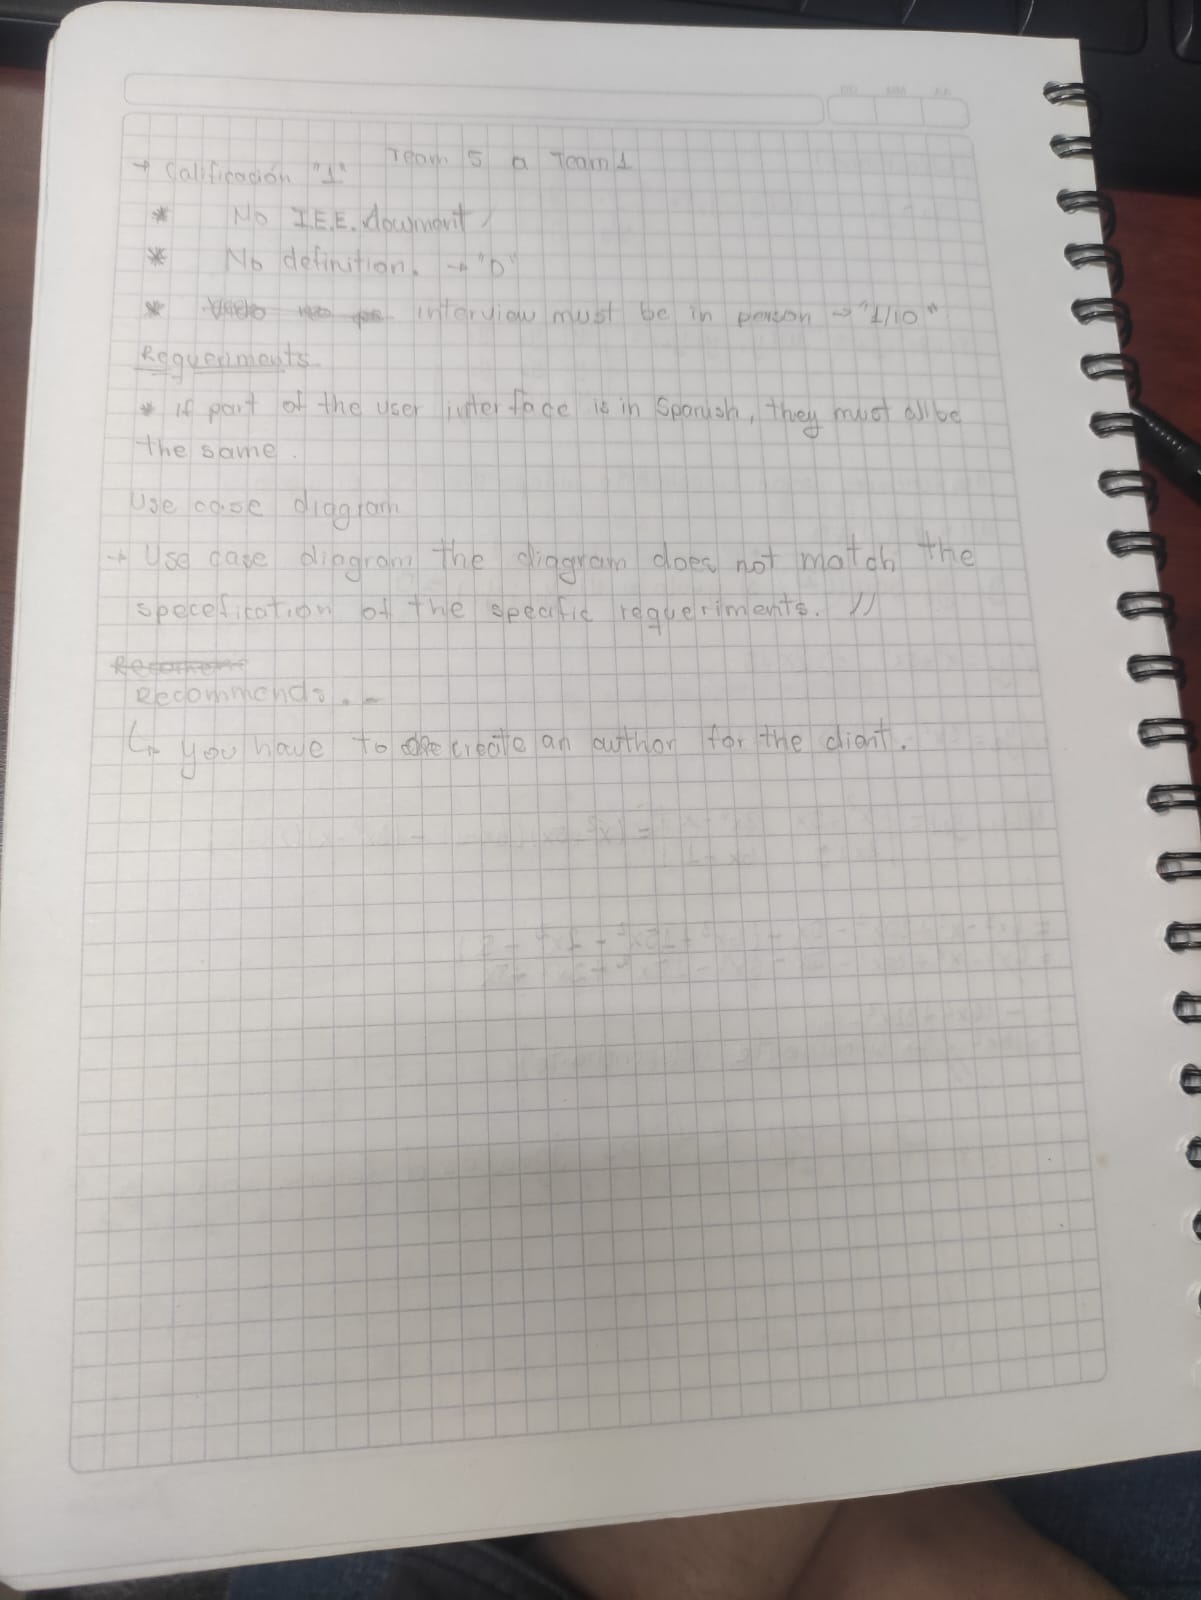 Team 5 a Team 1
→ Calificación "1"
* No I.E.E. dowment
* No definition. → "0"
* interview must be in person → "1/10"
Requeriments
* if part of the user interface is in Spanish, they must all be
the same.
Use case diagram
→ Use case diagram the diagram does not match the
specefication of the specific requeriments. //
Recommends. -
↳ you have to create an author for the client.